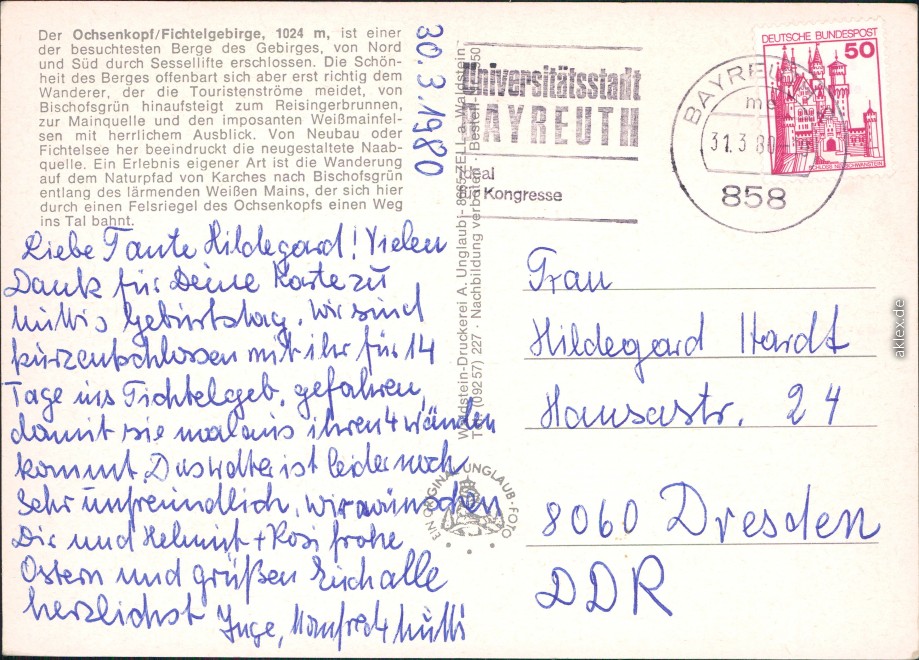 Der Ochsenkopf/Fichtelgebirge, 1024 m, ist einer
der besuchtesten Berge des Gebirges, von Nord
und Süd durch Sessellifte erschlossen. Die Schön-
heit des Berges offenbart sich aber erst richtig dem
Wanderer, der die Touristenströme meidet, von
Bischofsgrün hinaufsteigt zum Reisingerbrunnen,
zur Mainquelle und den imposanten Weißmainfel-
sen mit herrlichem Ausblick. Von Neubau oder
Fichtelsee her beeindruckt die neugestaltete Naab-
quelle. Ein Erlebnis eigener Art ist die Wanderung
auf dem Naturpfad von Karches nach Bischofsgrün
entlang des lärmenden Weißen Mains, der sich hier
durch einen Felsriegel des Ochsenkopfs einen Weg
ins Tal bahnt.
30.3.1980
Liebe Tante Hildegard! Vielen
Dank für Deine Karte zu
Muttis Geburtstag. Wir sind
kurzentschlossen mit ihr für 14
Tage ins Fichtelgeb. gefahren,
damit sie mal aus ihren 4 wänden
kommt. Das Wetter ist leider noch
sehr unfreundlich. Wir wünschen
Dir und Helmut + Rosi frohe
Ostern und grüßen Euch alle
herzlichst Inge, Manfred + Mutti
Waldstein-Druckerei A. Unglaub - 8665 ZELL a. Waldstein
(092 57) 227 · Nachbildung verboten · Bestell-
EIN ORIGINAL UNGLAUB-FOTO
Universitätsstadt
BAYREUTH
ideal
für Kongresse
BAYREUTH
31.3.80
858
DEUTSCHE BUNDESPOST
50
SCHLOSS NEUSCHWANSTEIN
Frau
Hildegard Hardt
Hansastr. 24
8060 Dresden
DDR
aklex.de